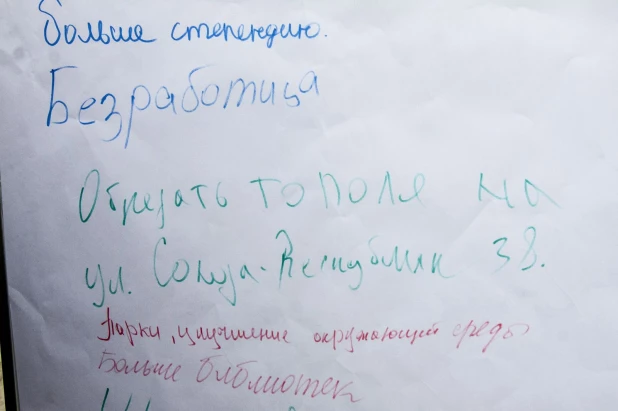 больше степендию.
Безработица
Обрезать тополя на
ул. Союза-Республик 38.
Парки, улучшение окружающей среды
Больше библиотек